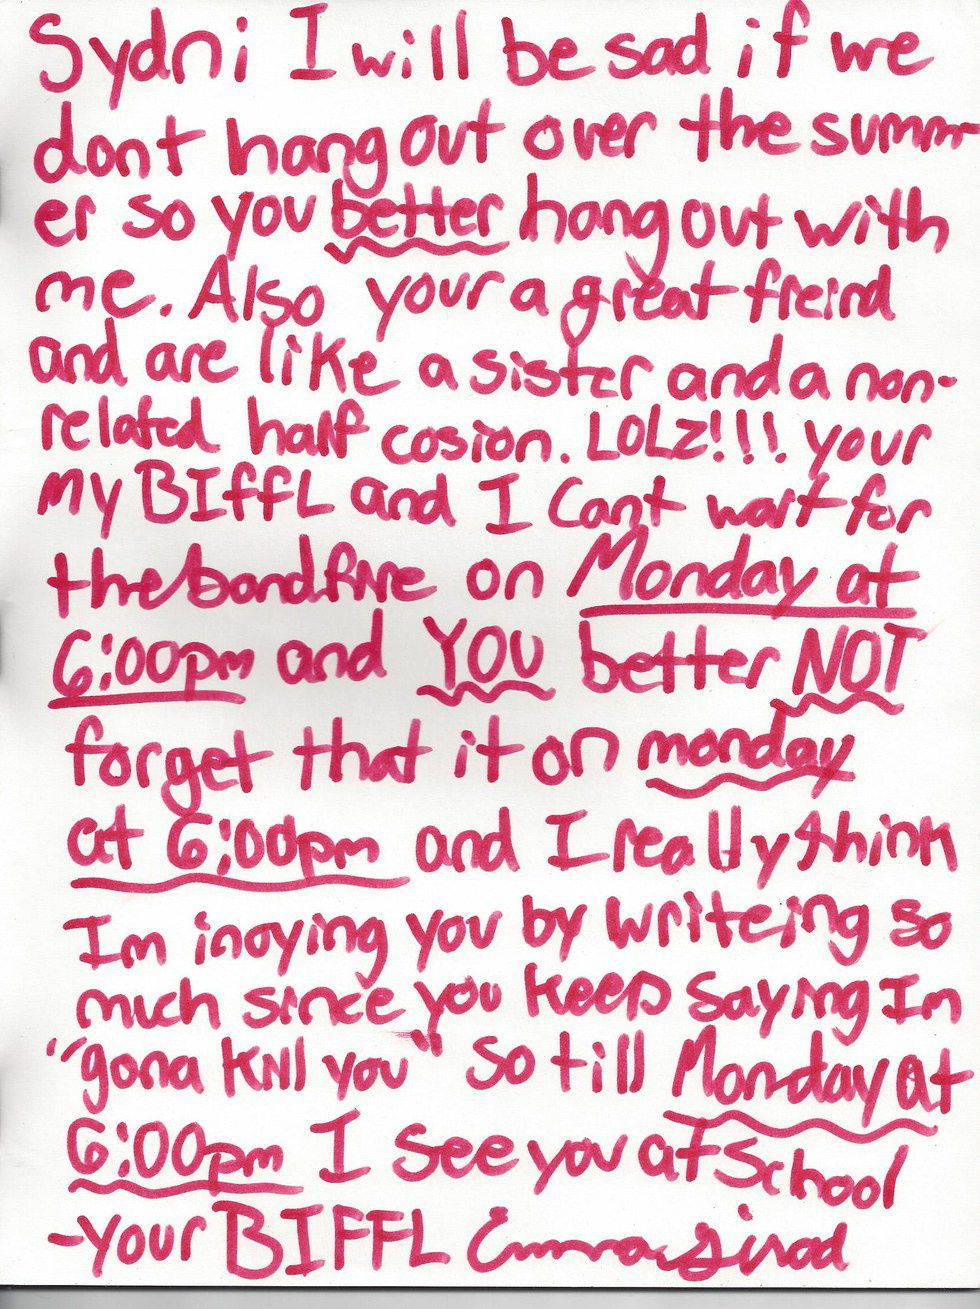 Sydni I will be sad if we
dont hang out over the summ
er so you better hang out with
me. Also your a great freind
and are like a sister and a non-
related half cosion. LOLZ!!! your
my BIffL and I cant wait for
the bondfire on Monday at
6:00pm and YOU better NOT
forget that it on monday
at 6:00pm and I really think
Im inoying you by writeing so
much since you keep saying Im
"gona kill you" so till Monday at
6:00pm I see you at school
-your BIFFL Emma Girod